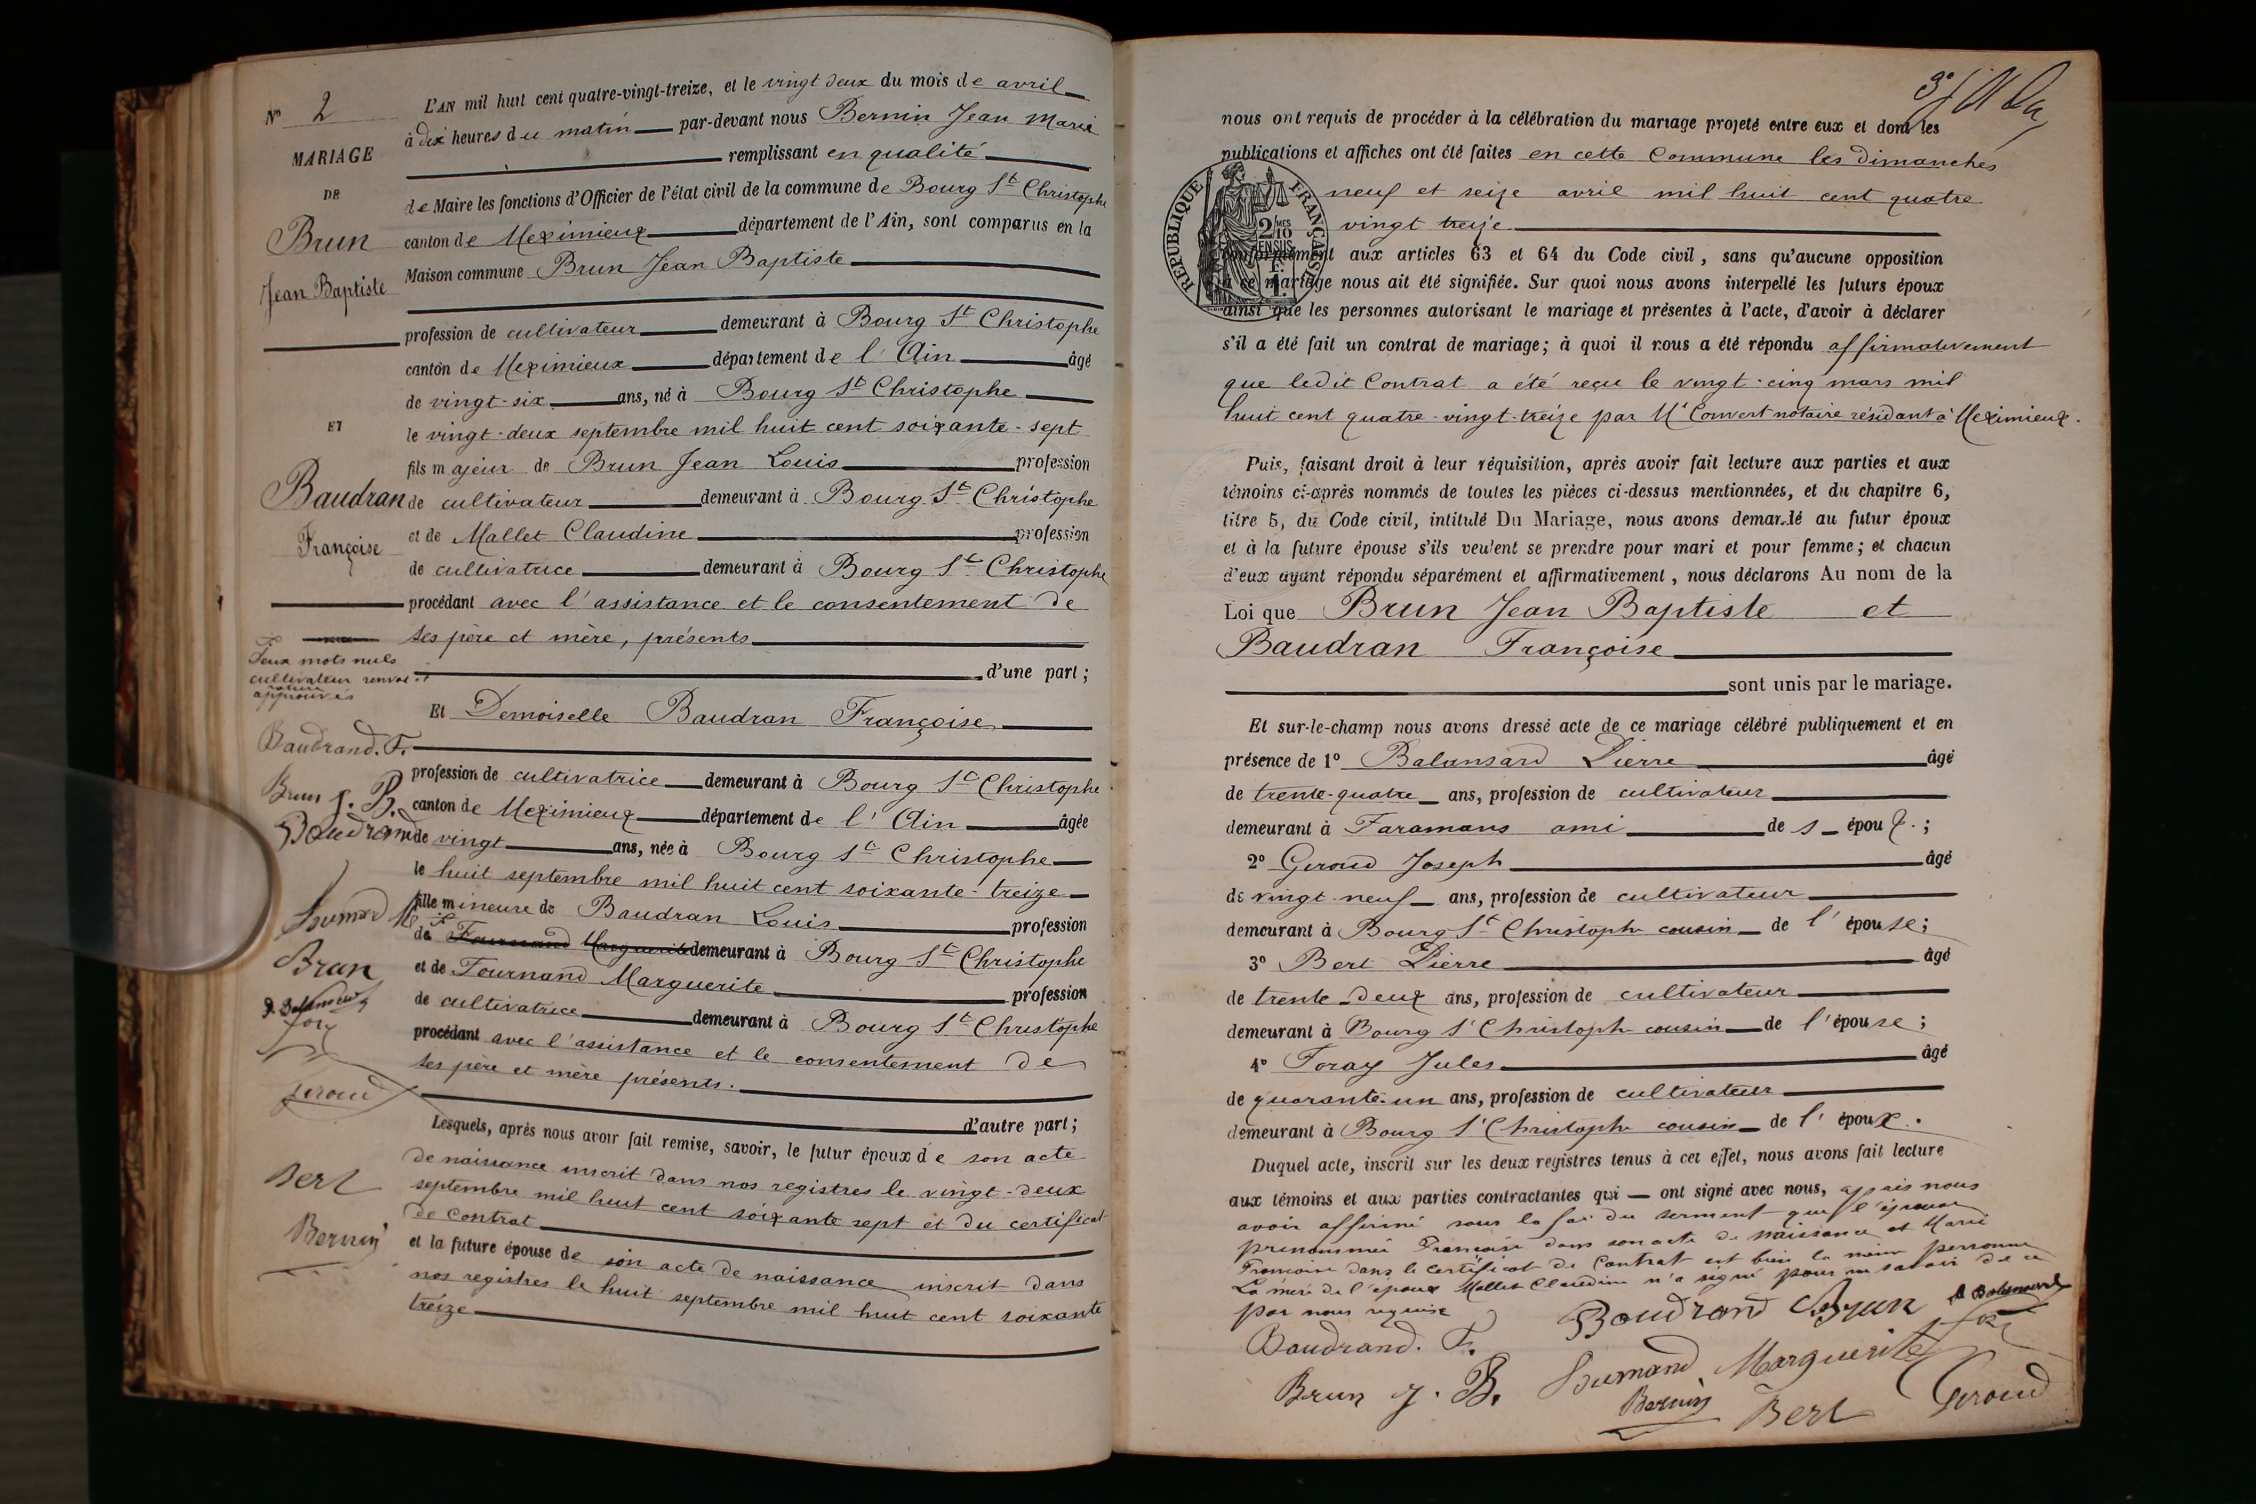 Nº 2
MARIAGE
DE
Brun
Jean Baptiste
ET
Baudran
Françoise
Deux mots nuls
cultivateur renvoi et
rature
approuvés
Baudrand. F.
Brun J. B.
Baudrand
Fournand M
Brun
P. Balansard
Foray
Giroud
Bert
Bernin
L'AN mil huit cent quatre-vingt-treize, et le vingt deux du mois de avril
à dix heures du matin par-devant nous Bernin Jean Marie
remplissant en qualité
de Maire les fonctions d'Officier de l'état civil de la commune de Bourg St Christophe
canton de Meximieux département de l'Ain, sont comparus en la
Maison commune Brun Jean Baptiste
profession de cultivateur demeurant à Bourg St Christophe
canton de Meximieux département de l'Ain âgé
de vingt-six ans, né à Bourg St Christophe
le vingt-deux septembre mil huit cent soixante-sept
fils majeur de Brun Jean Louis profession
de cultivateur demeurant à Bourg St Christophe
et de Mallet Claudine profession
de cultivatrice demeurant à Bourg St Christophe
procédant avec l'assistance et le consentement de
ses père et mère, présents
d'une part;
Et Demoiselle Baudran Françoise
profession de cultivatrice demeurant à Bourg St Christophe
canton de Meximieux département de l'Ain âgée
de vingt ans, née à Bourg St Christophe
le huit septembre mil huit cent soixante-treize
fille mineure de Baudran Louis profession
de Fournand Marguerite demeurant à Bourg St Christophe
et de Fournand Marguerite profession
de cultivatrice demeurant à Bourg St Christophe
procédant avec l'assistance et le consentement de
ses père et mère présents.
d'autre part;
Lesquels, après nous avoir fait remise, savoir, le futur époux de son acte
de naissance inscrit dans nos registres le vingt-deux
septembre mil huit cent soixante sept et du certificat
de contrat
et la future épouse de son acte de naissance inscrit dans
nos registres le huit septembre mil huit cent soixante
treize
3e
nous ont requis de procéder à la célébration du mariage projeté entre eux et dont les
publications et affiches ont été faites en cette Commune les dimanches
neuf et seize avril mil huit cent quatre
vingt treize
REPUBLIQUE FRANÇAISE
2/10MES
EN SUS
conformément aux articles 63 et 64 du Code civil, sans qu'aucune opposition
à ce mariage nous ait été signifiée. Sur quoi nous avons interpellé les futurs époux
ainsi que les personnes autorisant le mariage et présentes à l'acte, d'avoir à déclarer
s'il a été fait un contrat de mariage; à quoi il nous a été répondu affirmativement
que ledit Contrat a été reçu le vingt-cinq mars mil
huit cent quatre-vingt-treize par Me Convert notaire résidant à Meximieux.
Puis, faisant droit à leur réquisition, après avoir fait lecture aux parties et aux
témoins ci-après nommés de toutes les pièces ci-dessus mentionnées, et du chapitre 6,
titre 5, du Code civil, intitulé Du Mariage, nous avons demandé au futur époux
et à la future épouse s'ils veulent se prendre pour mari et pour femme; et chacun
d'eux ayant répondu séparément et affirmativement, nous déclarons Au nom de la
Loi que Brun Jean Baptiste et
Baudran Françoise
sont unis par le mariage.
Et sur-le-champ nous avons dressé acte de ce mariage célébré publiquement et en
présence de 1º Balansard Pierre âgé
de trente-quatre ans, profession de cultivateur
demeurant à Faramans ami de s époux.;
2º Giroud Joseph âgé
de vingt neuf ans, profession de cultivateur
demeurant à Bourg St Christophe cousin de l'épouse;
3º Bert Pierre âgé
de trente-deux ans, profession de cultivateur
demeurant à Bourg St Christophe cousin de l'épouse;
4º Foray Jules âgé
de quarante-un ans, profession de cultivateur
demeurant à Bourg St Christophe cousin de l'époux.
Duquel acte, inscrit sur les deux registres tenus à cet effet, nous avons fait lecture
aux témoins et aux parties contractantes qui ont signé avec nous, après nous
avoir affirmé sous la foi du serment que l'épouse
prénommée Françoise dans son acte de naissance et Marie
Françoise dans le certificat de Contrat est bien la même personne
La mère de l'époux Mallet Claudine n'a signé pour ne savoir de ce
par nous requise
Baudrand. F. Baudrand Brun P. Balansard
Foray
Brun J. B. Fournand Marguerite
Bernin Bert Giroud